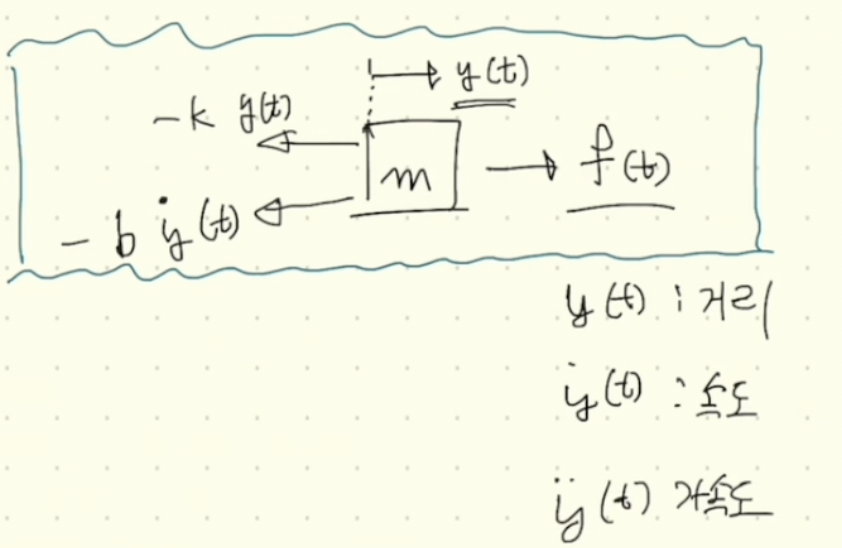 y(t)
-k y(t)
m
f(t)
-b ẏ(t)
y(t) : 거리
ẏ(t) : 속도
ÿ(t) 가속도